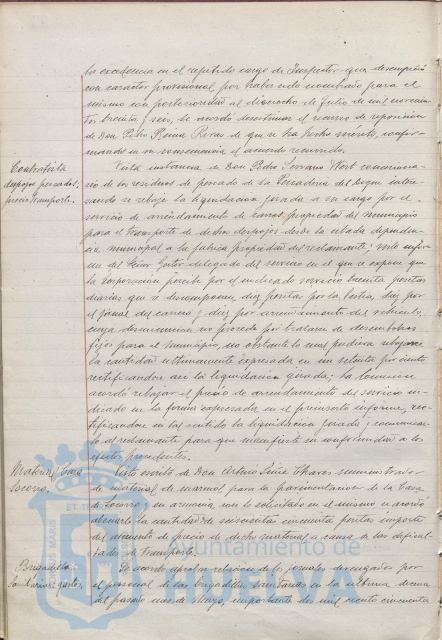 la excedencia en el repetido cargo de Inspector que desempeñó
con carácter provisional, por haber sido nombrado para el
mismo con posterioridad al dieciocho de Julio de mil novecien-
tos treinta y seis, se acordó desestimar el recurso de reposición
de Don Pedro Rivas de que se ha hecho mérito, confir-
mando en su consecuencia el acuerdo recurrido.
Contratista
despojos pescados;
precio transporte.
Vista instancia de Don Pedro Serrano concesiona-
rio de los residuos de pescado de la Pescadería del intere-
sando se rebaje la liquidación girada a su cargo por el
servicio de arrendamiento de carros propiedad del Municipio
para el transporte de dichos despojos desde la citada dependen-
cia municipal a la fábrica propiedad del reclamante; visto infor-
me del Señor Gestor delegado del servicio en el que se expone que
la Corporación percibe por el indicado servicio treinta pesetas
diarias que se descomponen, diez pesetas por la bestia, diez por
el jornal del carrero y diez por arrendamiento del vehículo,
cuya disminución no procede por tratarse de desembolsos
fijos para el Municipio, no obstante lo cual pudiera rebajarse
la cantidad últimamente expresada en un setenta por ciento
rectificándose así la liquidación girada; la Comisión
acordó rebajar el precio de arrendamiento del servicio in-
dicado en la forma expresada en el preinserto informe, rec-
tificándose en tal sentido la liquidación girada y comunicán-
dolo al reclamante para que manifieste su conformidad a los
efectos procedentes.
Material Casa
Socorro.
Visto escrito de Don Arturo suministrador
de material de mármol para la pavimentación de la Casa
de Socorro y en armonía con lo solicitado en el mismo se acordó
abonarle la cantidad de cincuenta pesetas importe
del aumento de precio de dicho material a causa a las dificul-
tades de transporte.
Brigadilla
Sanitaria; gastos.
Se acordó aprobar relación de los jornales devengados por
el personal de las Brigadillas Sanitarias en la última decena
del pasado mes de Mayo, importante de mil ciento cincuenta
Ayuntamiento de
HUELVA